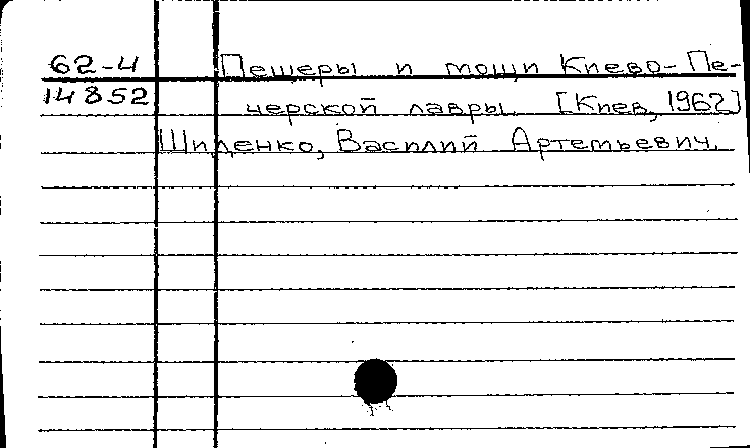 62-4 Пещеры и мощи Киево-Пе-
14852 черской лавры. [Киев, 1962]
Шиденко, Василий Артемьевич.